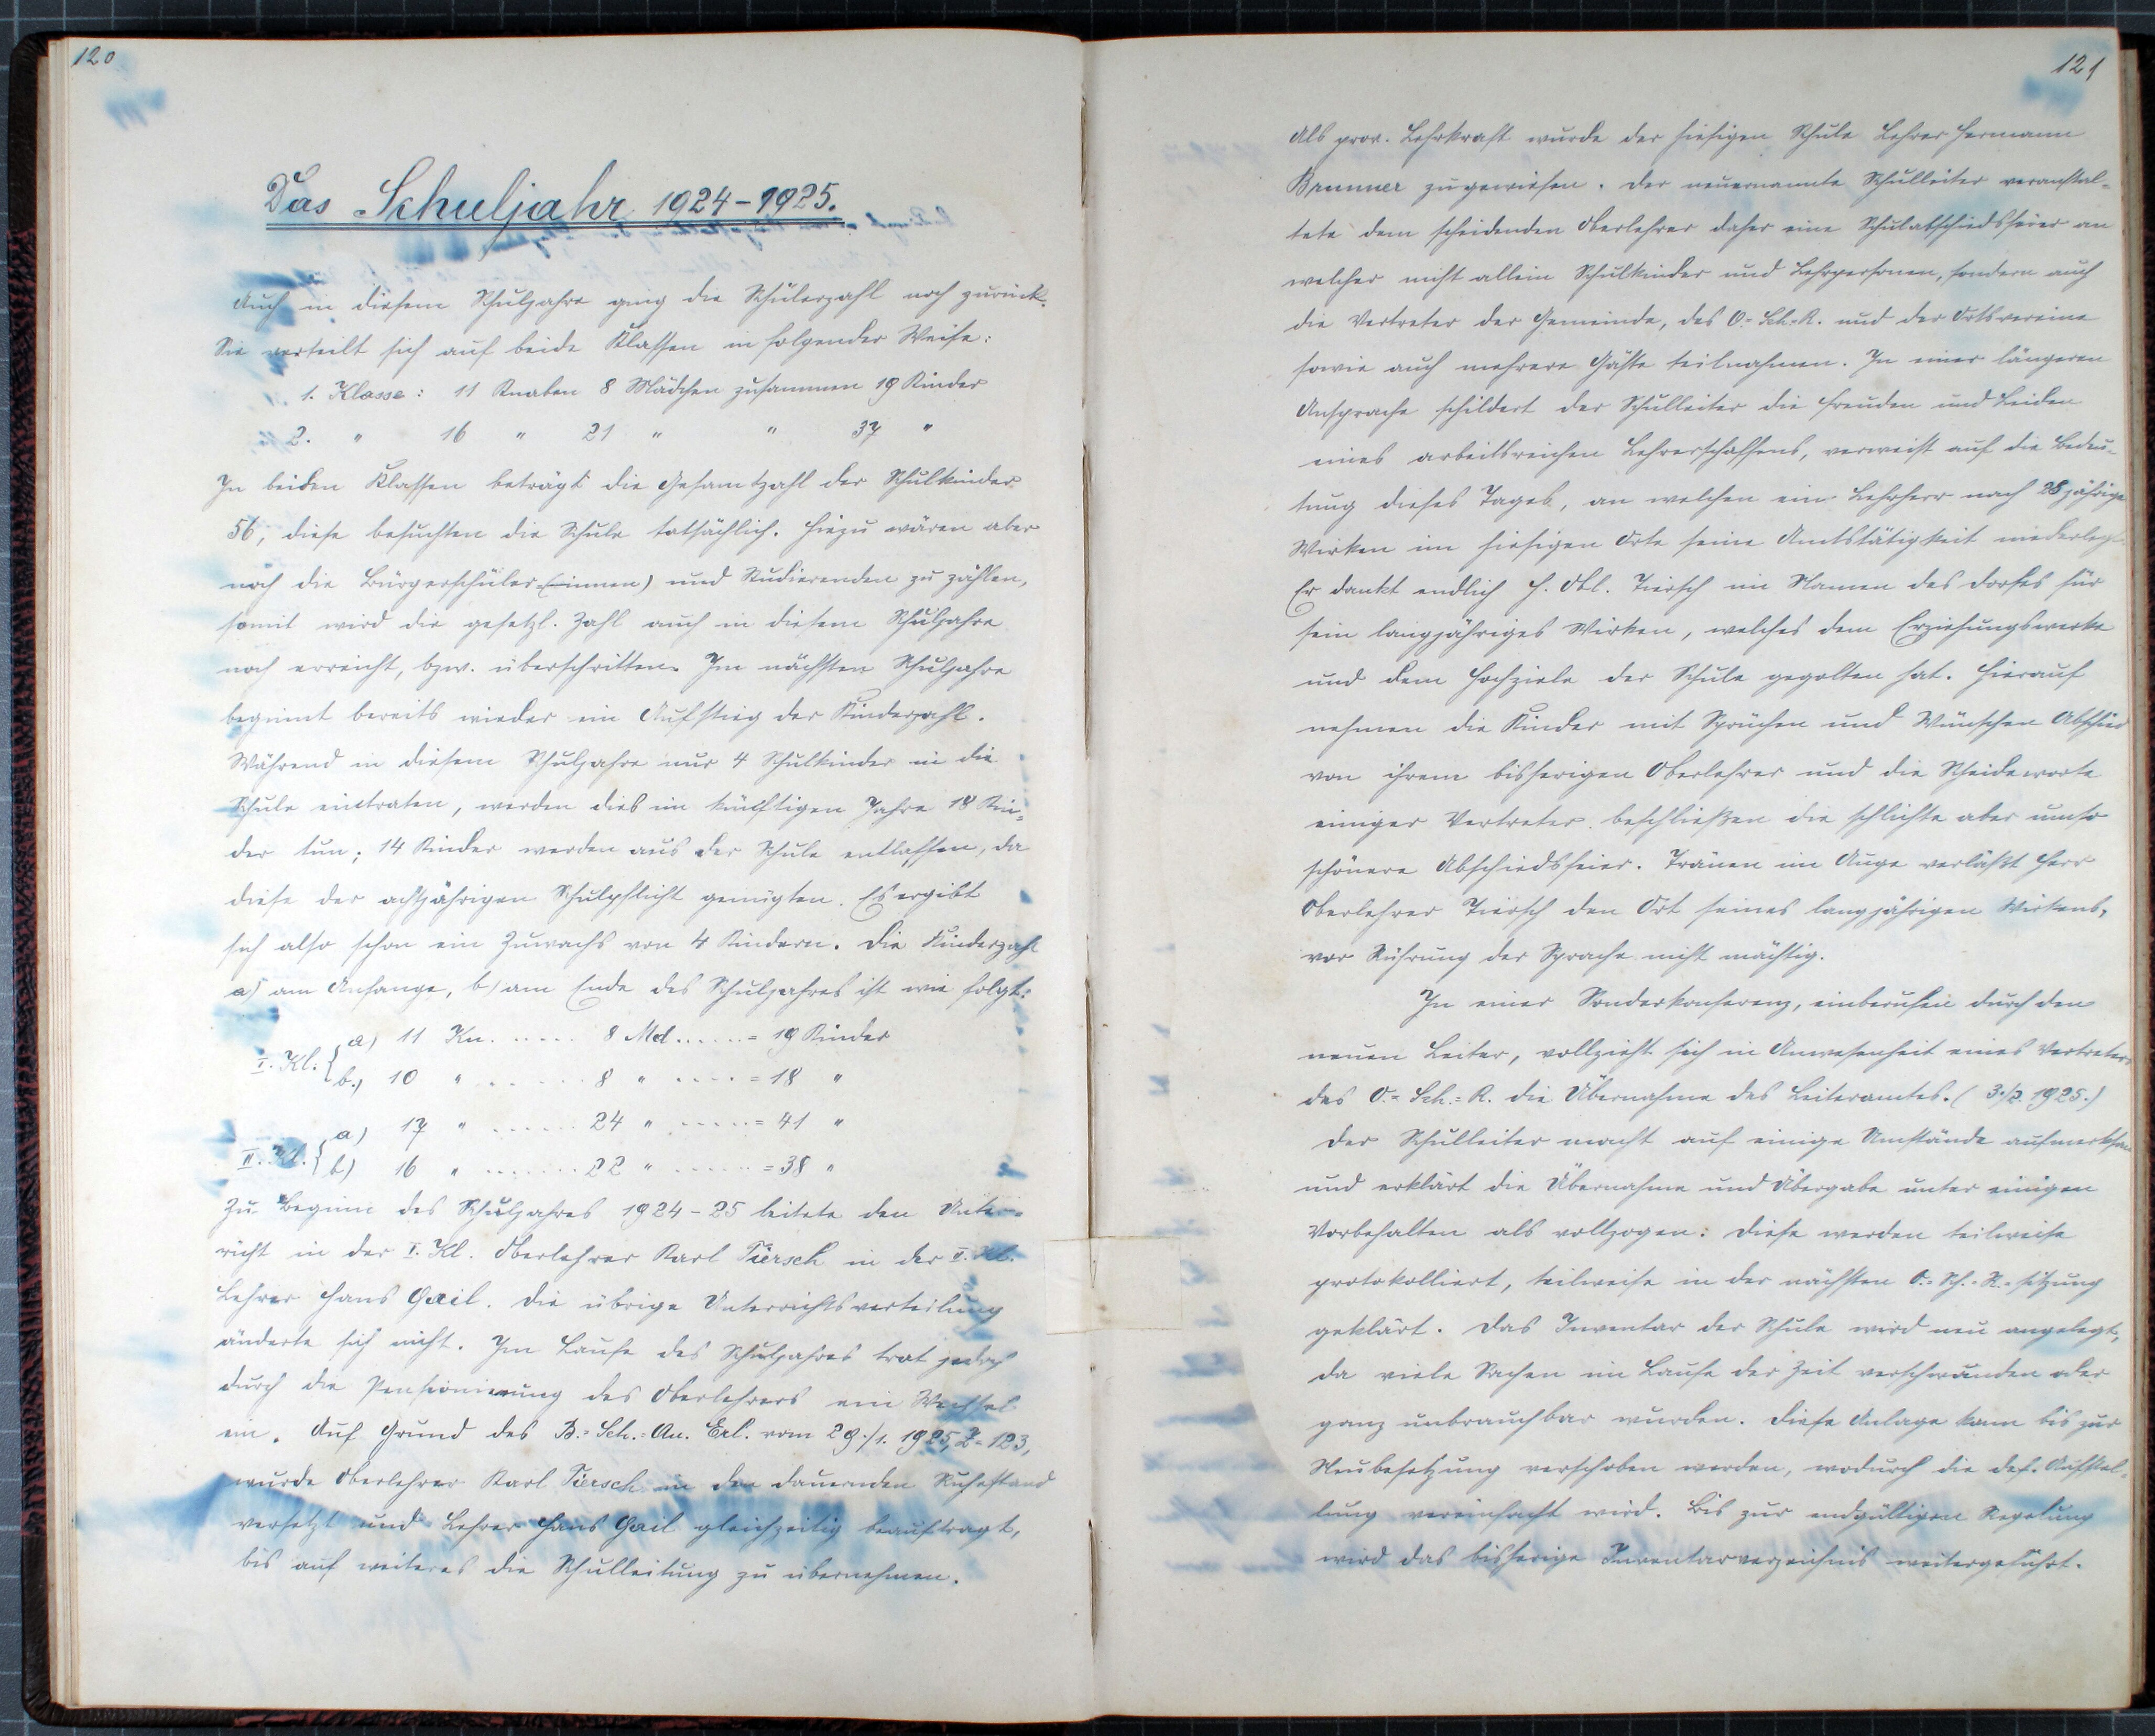 120
Das Schuljahr 1924-1925.
Auch in diesem Schuljahre ging die Schülerzahl noch zurück.
Sie verteilt sich auf beide Klassen in folgender Weise:
1. Klasse: 11 Knaben 8 Mädchen zusammen 19 Kinder
2. " 16 " 21 " " 37 "
In beiden Klassen beträgt die Gesamtzahl der Schulkinder
56, diese besuchten die Schule tatsächlich. Hiezu wären aber
noch die Bürgerschüler (innen) und Studierenden zu zählen,
somit wird die gesetzl. Zahl auch in diesem Schuljahre
noch erreicht, bzw. überschritten. Im nächsten Schuljahre
beginnt bereits wieder ein Aufstieg der Kinderzahl.
Während in diesem Schuljahre nur 4 Schulkinder in die
Schule eintraten, werden dies im künftigen Jahre 18 Kin=
der tun; 14 Kinder werden aus der Schule entlassen, da
diese der achtjährigen Schulpflicht genügten. Es ergibt
sich also schon ein Zuwachs von 4 Kindern. Die Kinderzahl
a) am Anfange, b) am Ende des Schuljahres ist wie folgt:
I. Kl. { a) 11 Kn. ..... 8 Md ...... = 19 Kinder
b.) 10 " ...... 8 " .... = 18 "
II. Kl. { a) 17 " ...... 24 " ..... = 41 "
b) 16 " ....... 22 " ...... = 38 "
Zu Beginn des Schuljahres 1924-25 leitete den Unter=
richt in der I. Kl. Oberlehrer Karl Tiersch in der II. Kl.
Lehrer Hans Gail. Die übrige Unterrichtsverteilung
änderte sich nicht. Im Laufe des Schuljahres trat jedoch
durch die Pensionierung des Oberlehrers ein Wechsel
ein. Auf Grund des B.=Sch.=Au. Erl. vom 29./1. 1925, Z=123,
wurde Oberlehrer Karl Tiersch in den dauernden Ruhestand
versetzt und Lehrer Hans Gail gleichzeitig beauftragt,
bis auf weiteres die Schulleitung zu übernehmen.
121
Als prov. Lehrkraft wurde der hiesigen Schule Lehrer Hermann
Brunner zugewiesen. Der neuernannte Schulleiter veranstal=
tete dem scheidenden Oberlehrer daher eine Schulabschiedsfeier an
welcher nicht allein Schulkinder und Lehrpersonen, sondern auch
die Vertreter der Gemeinde, des O.=Sch.=R. und der Ortsvereine
sowie auch mehrere Gäste teilnahmen. In einer längeren
Ansprache schildert der Schulleiter die Freuden und Leiden
eines arbeitsreichen Lehrerschaffens, verweist auf die Bedeu=
tung dieses Tages, an welchen ein Lehrherr nach 28 jährige
Wirken im hiesigen Orte seine Amtstätigkeit niederlegt.
Er dankt endlich H. Obl. Tiersch im Namen des Dorfes für
sein langjähriges Wirken, welches dem Erziehungswerke
und dem Hochziele der Schule gegolten hat. Hierauf
nehmen die Kinder mit Sprüchen und Wünschen Abschied
von ihrem bisherigen Oberlehrer und die Scheideworte
einiger Vertreter beschließen die schlichte aber umso
schönere Abschiedsfeier. Tränen im Auge verläßt Herr
Oberlehrer Tiersch den Ort seines langjährigen Wirkens,
vor Rührung der Sprache nicht mächtig.
In einer Sonderkonferenz, einberufen durch den
neuen Leiter, vollzieht sich in Anwesenheit eines Vertreters
des O.=Sch.=R. die Übernahme des Leiteramtes. (3./2. 1925.)
Der Schulleiter macht auf einige Umstände aufmerksam
und erklärt die Übernahme und Übergabe unter einigen
Vorbehalten als vollzogen: Diese werden teilweise
protokolliert, teilweise in der nächsten O.=Sch.=R.=sitzung
geklärt. Das Inventar der Schule wird neu angelegt,
da viele Sachen im Laufe der Zeit verschwunden oder
ganz unbrauchbar wurden. Diese Anlage kann bis zur
Neubesetzung verschoben werden, wodurch die def. Aufstel=
lung vereinfacht wird. Bis zur endgültigen Regelung
wird das bisherige Inventarverzeichnis weitergeführt.